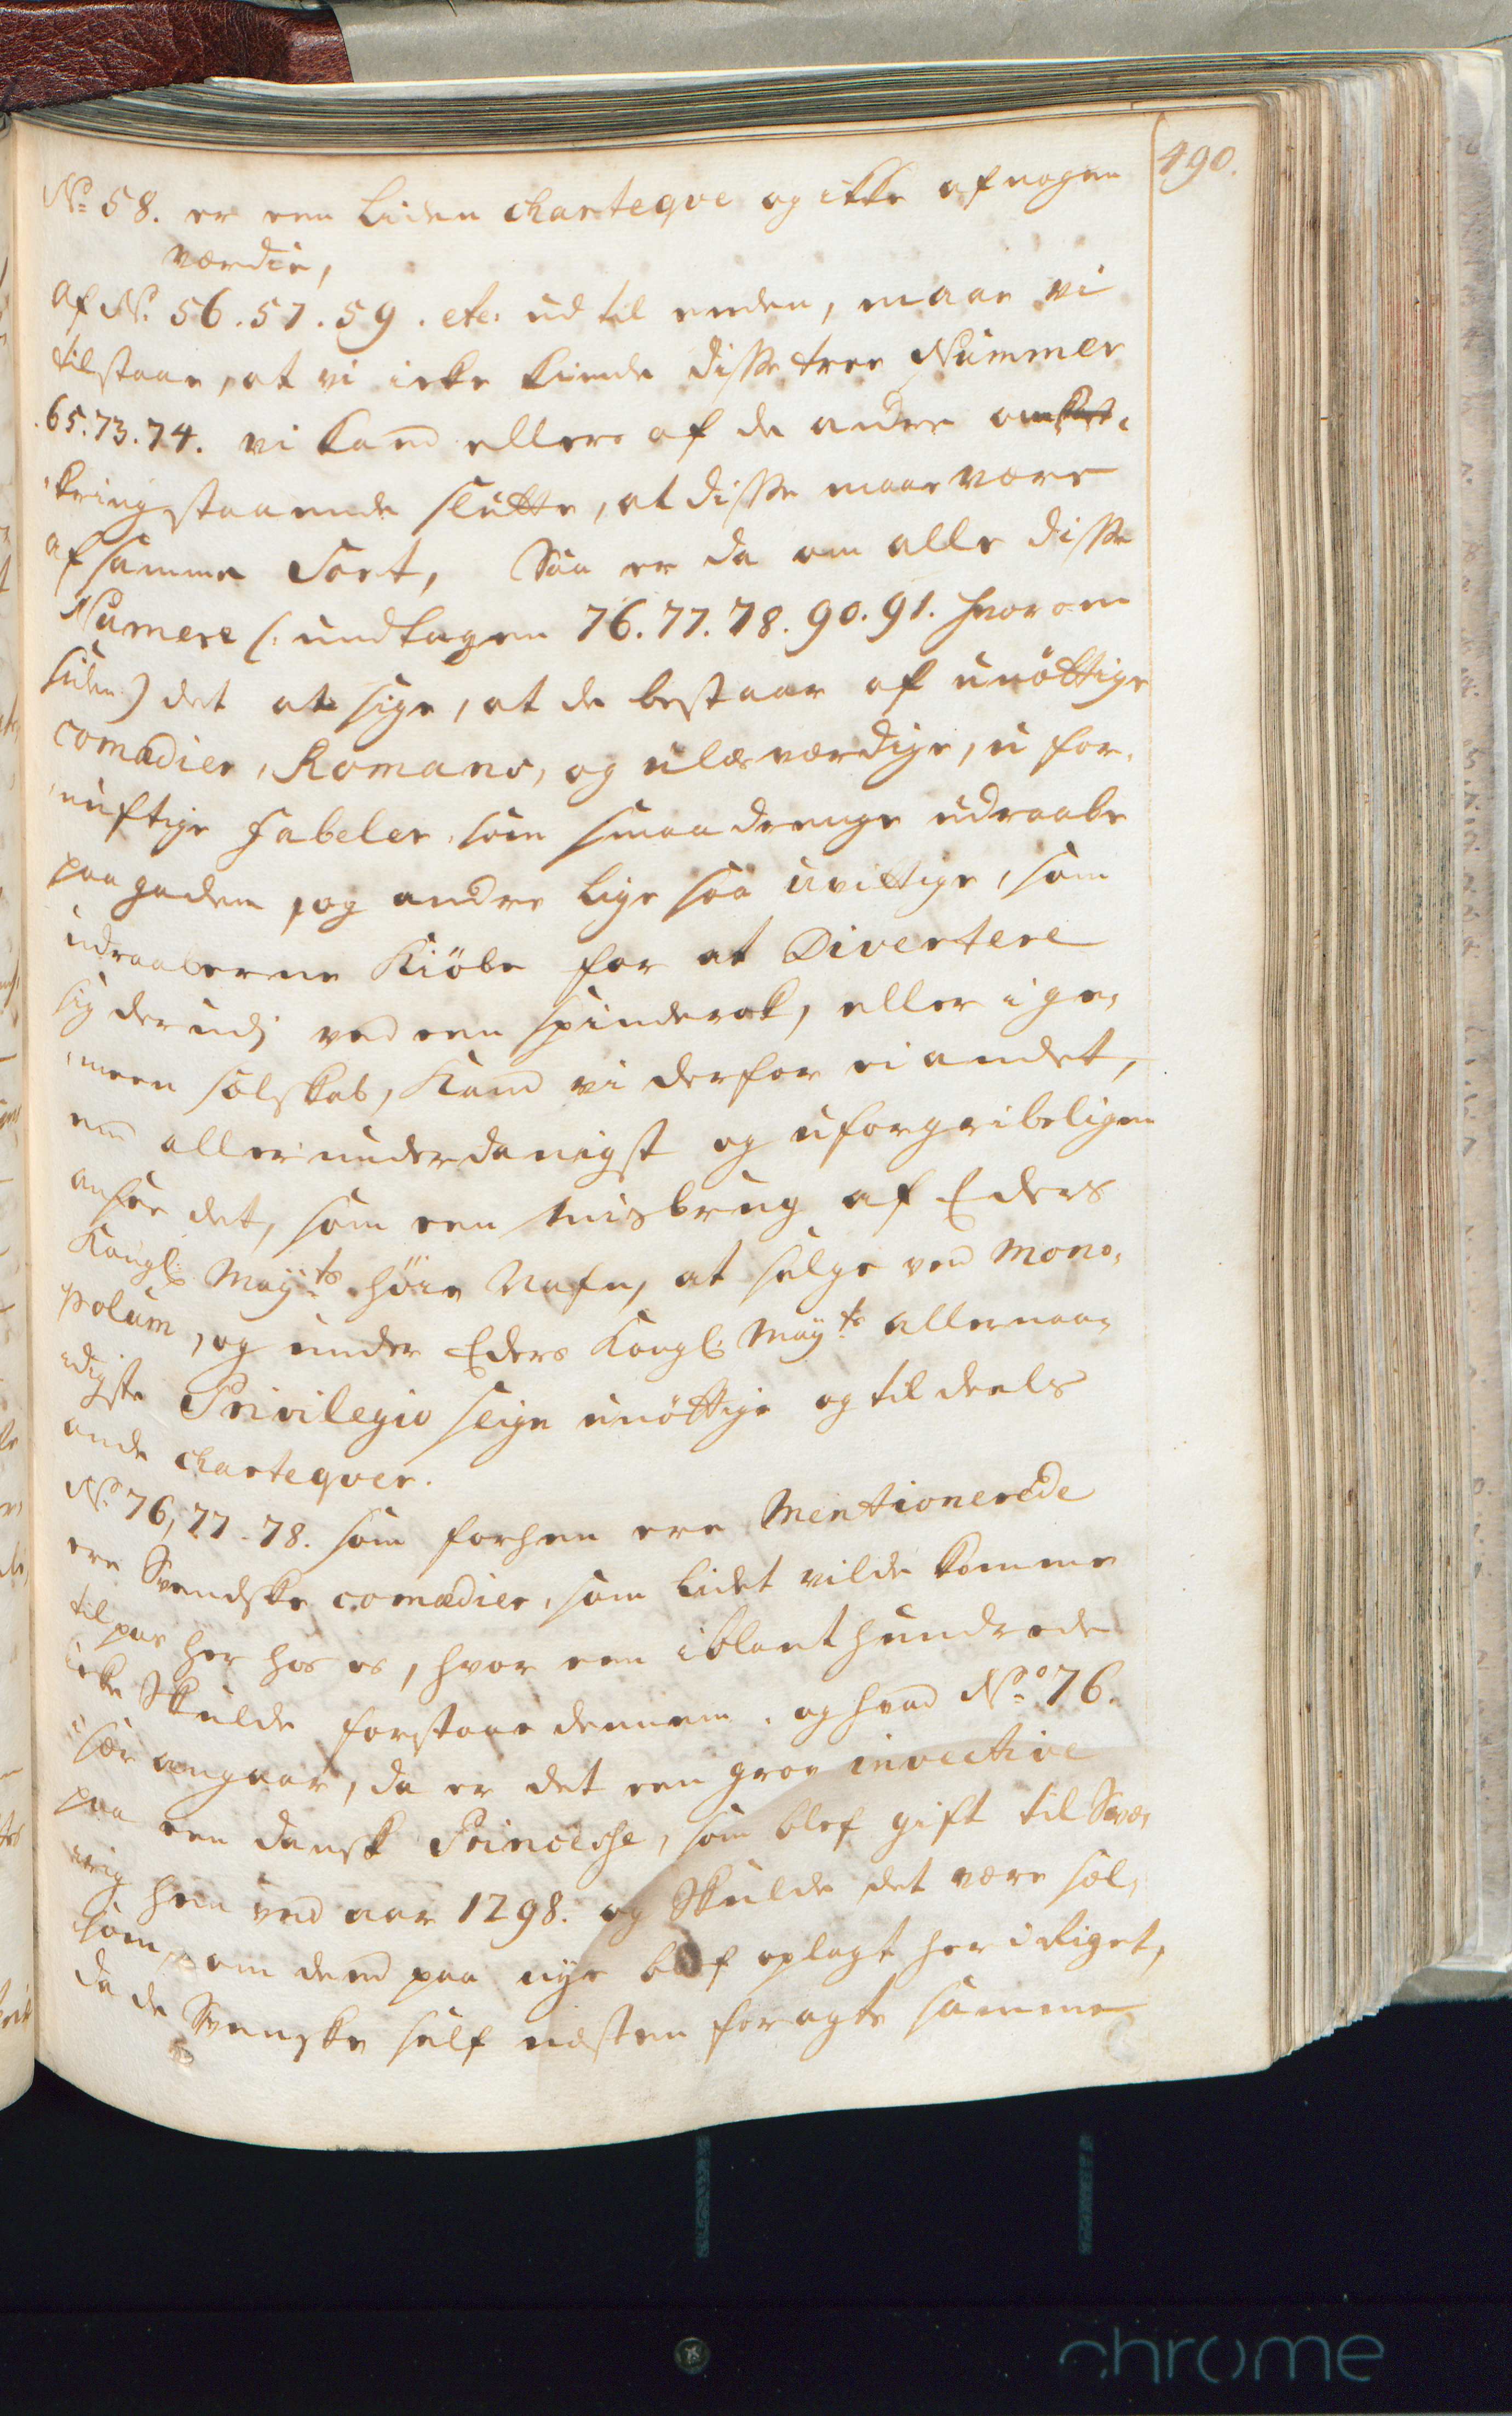 490.
No 58. er een liden charteqve og ikke af nogen
værdie,
Af No. 56. 57. 59. etc: ud til enden, maae vi
tilstaae, at vi icke kiende disse tree Nummer
65. 73. 74. vi kand ellers af de andre om
kringstaaende slutte, at disse maae være
af samme Sort, Saa er da om alle disse
Numere (: undtagen 76. 77. 78. 90. 91. hvorom
siden) det at sige, at de bestaar af unöttige
comædier, Romans, og ulæsværdige, u for-
nuftige fabeler, som smaa drenge udraabe
paa gaden, og andre lige saa uvittige, som
udraaberne Kiöbe for at Divertere
sig der udj ved een spinderok, eller i ge-
meen selskab, Kand vi derfor ei andet,
end allerunderdanigst og uforgribeligen
ansee det, som een misbrug af Eders
Kongl: Mayts. höie Nafn, at sælge ved Mono-
polium, og under Eders Kongl: Mayts allernaa-
digste Privilegio slige unöttige og til deels
onde charteqver.
No. 76, 77. 78. som forhen ere Mentionerede
ere Svendske comædier, som lidet vilde komme
til pas her hos os, hvor een iblant hundrede
icke skulde forstaae dennem. og hvad No. 76.
især angaar, da er det een grov invective
paa een dansk Princesse, som blef gift til Sve-
rrig hen ved aar 1298. og skulde det være sæl-
som, om dend paa nye blef oplagt her i Riget,
da de Svenske self næsten foragte samme
chrome